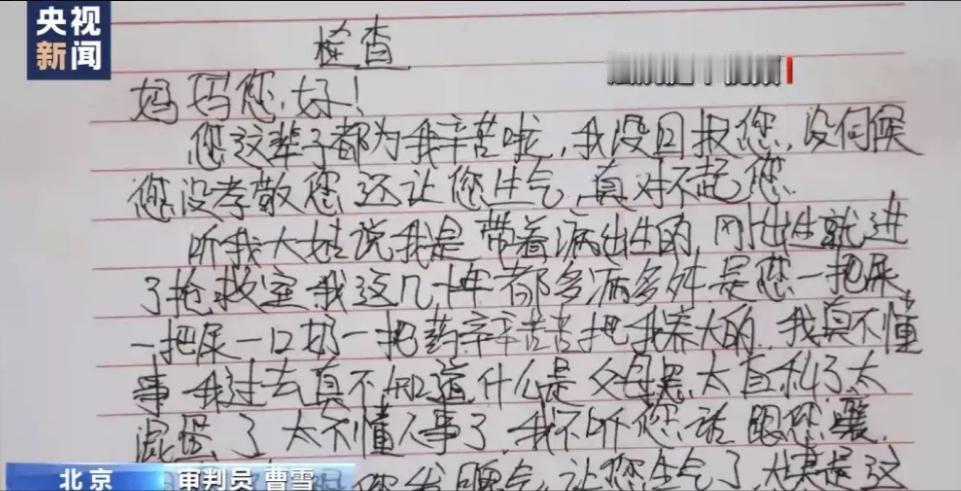 央视
新闻
检查
妈妈您好！
您这辈子都为我辛苦啦，我没回报您，没伺候
您没孝敬您还让您生气，真对不起您.
听我大姑说我是带着病出生的，刚出生就进
了抢救室我这几十年都多病多灾是您一把屎
一把尿一口奶一把药辛辛苦苦把我养大的，我真不懂
事我过去真不知道什么是父母恩太自私了太
混蛋了太不懂人事了，我不听您话跟您嚷，
您发脾气，让您生气了尤其是这
北京 审判员 曹雪